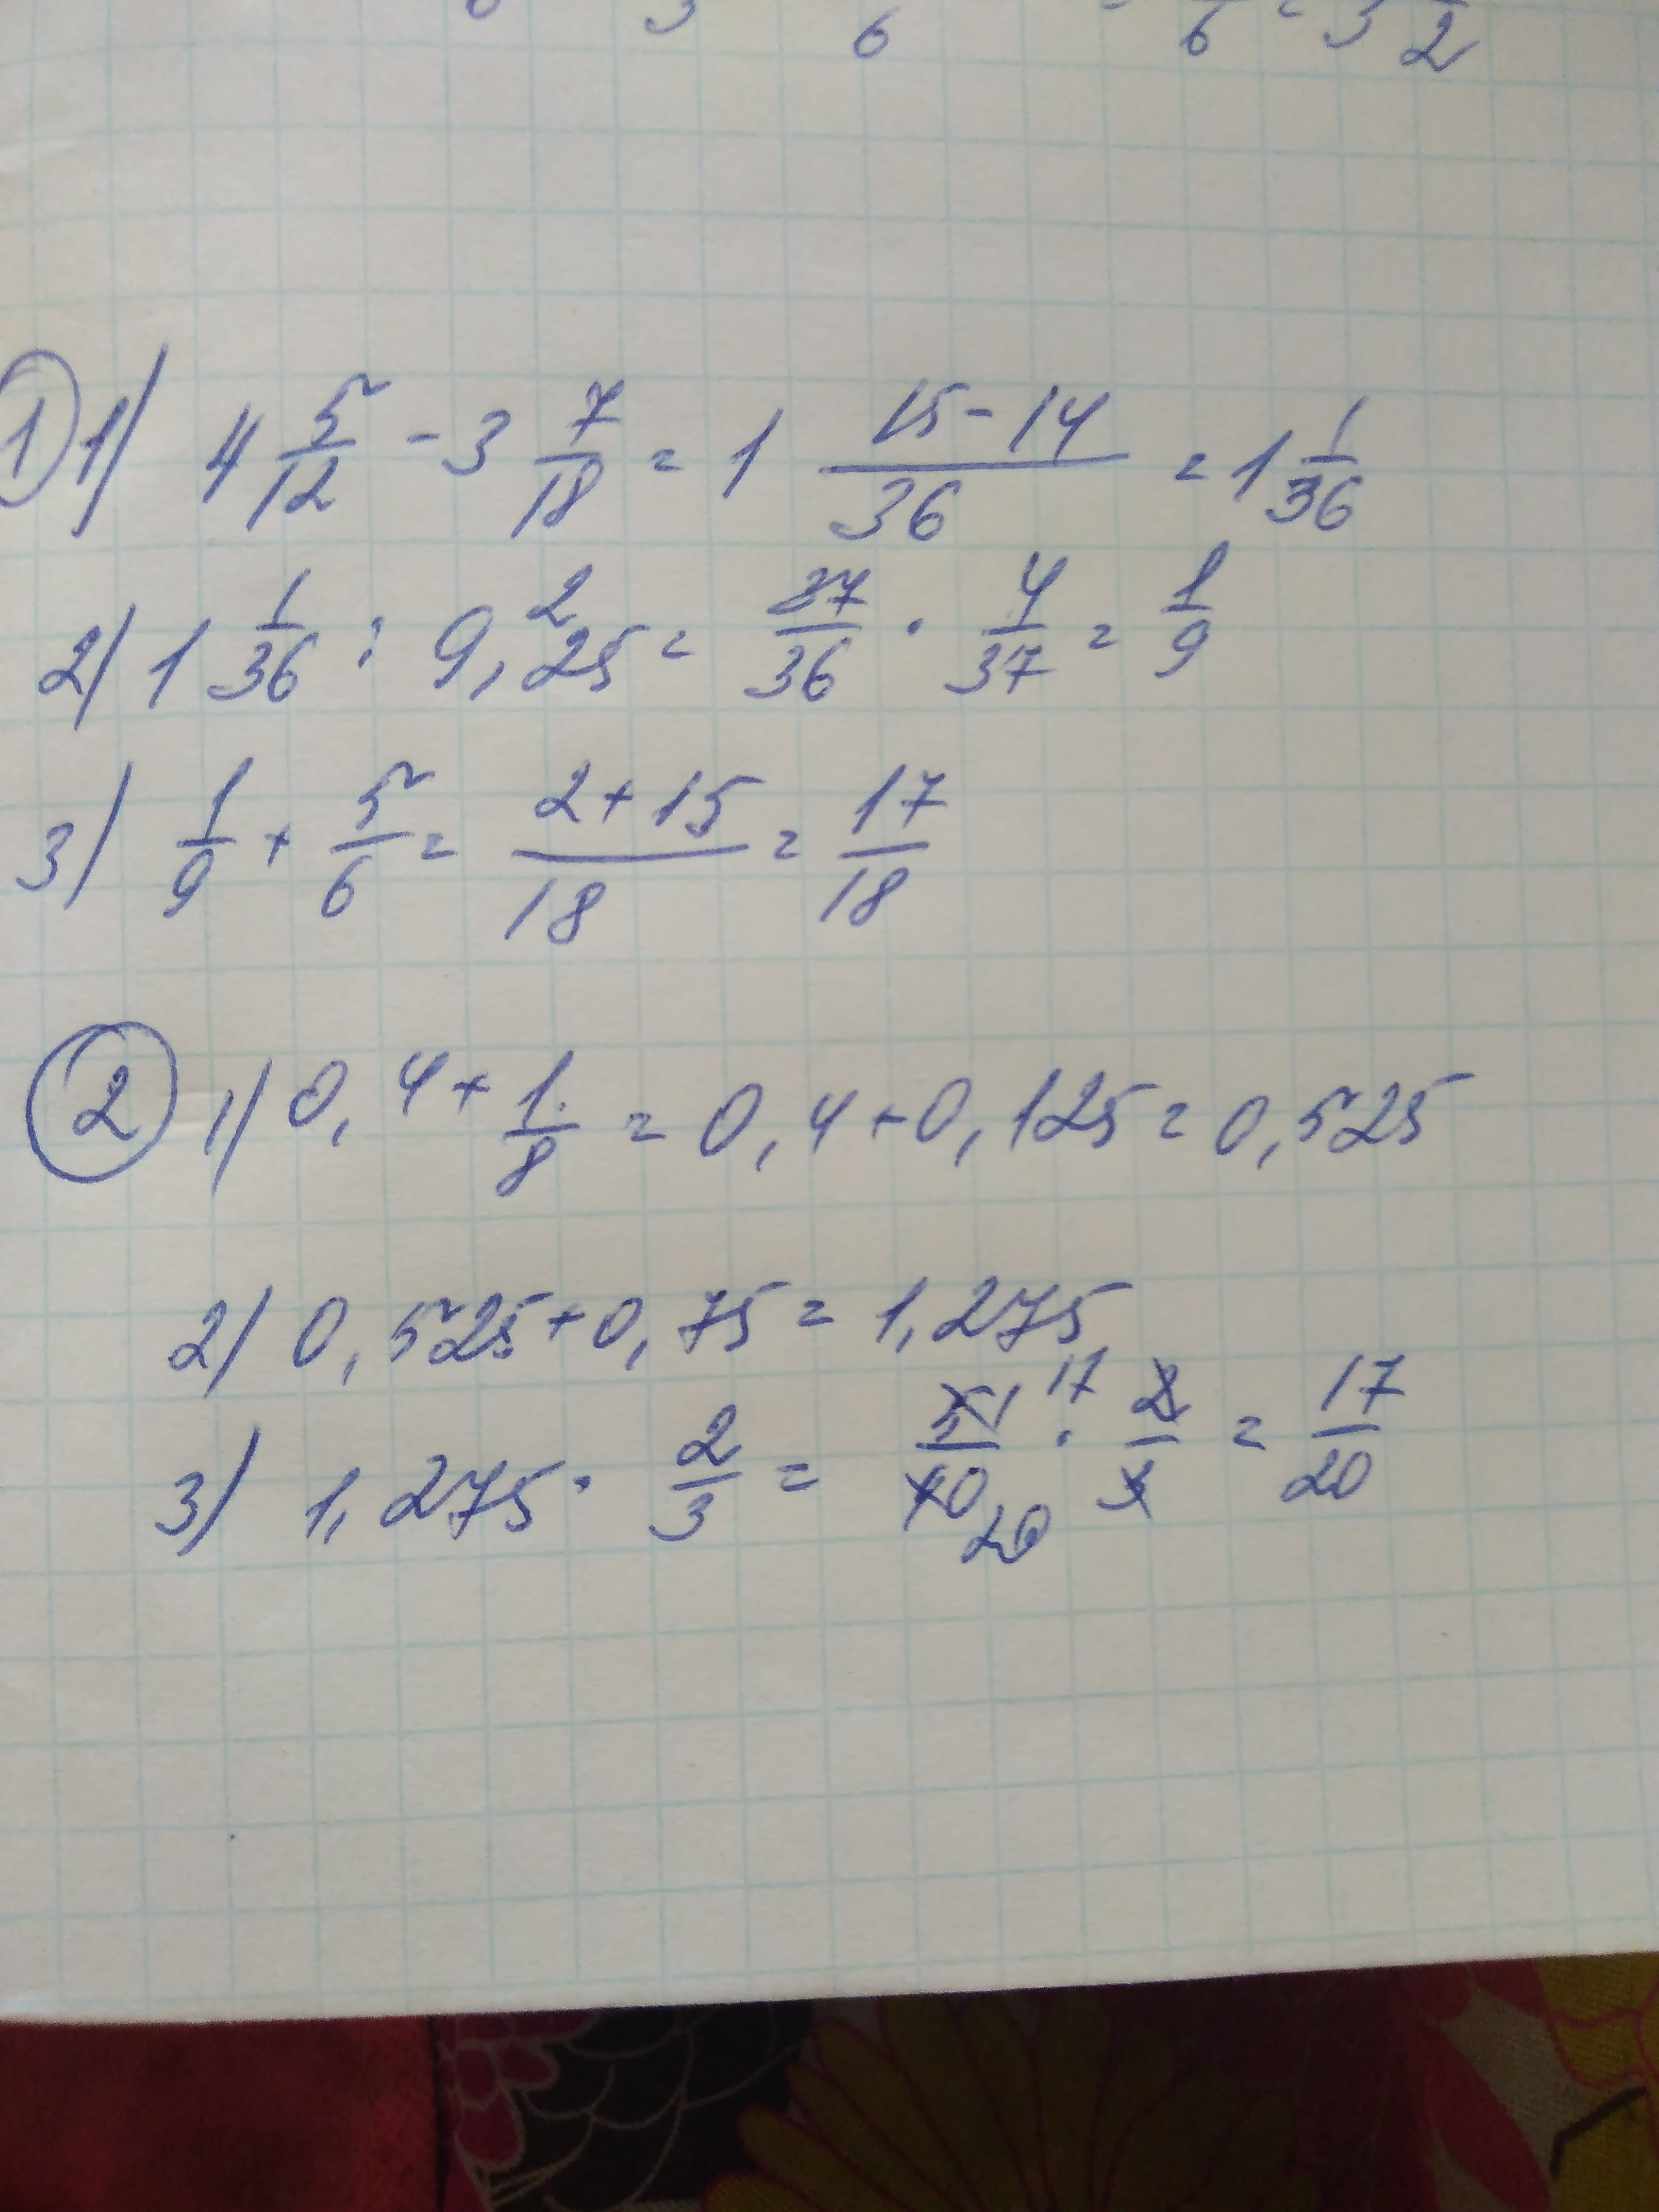 6 = 6 = 3 2
① 1) 4 5/12 - 3 7/18 = 1 15-14/36 = 1 1/36
2) 1 1/36 : 9,25 = 37/36 · 4/37 = 1/9
3) 1/9 + 5/6 = 2+15/18 = 17/18
② 1) 0,4 + 1/8 = 0,4 + 0,125 = 0,525
2) 0,525 + 0,75 = 1,275
3) 1,275 · 2/3 = 51 17/40 20 · 2/3 = 17/20